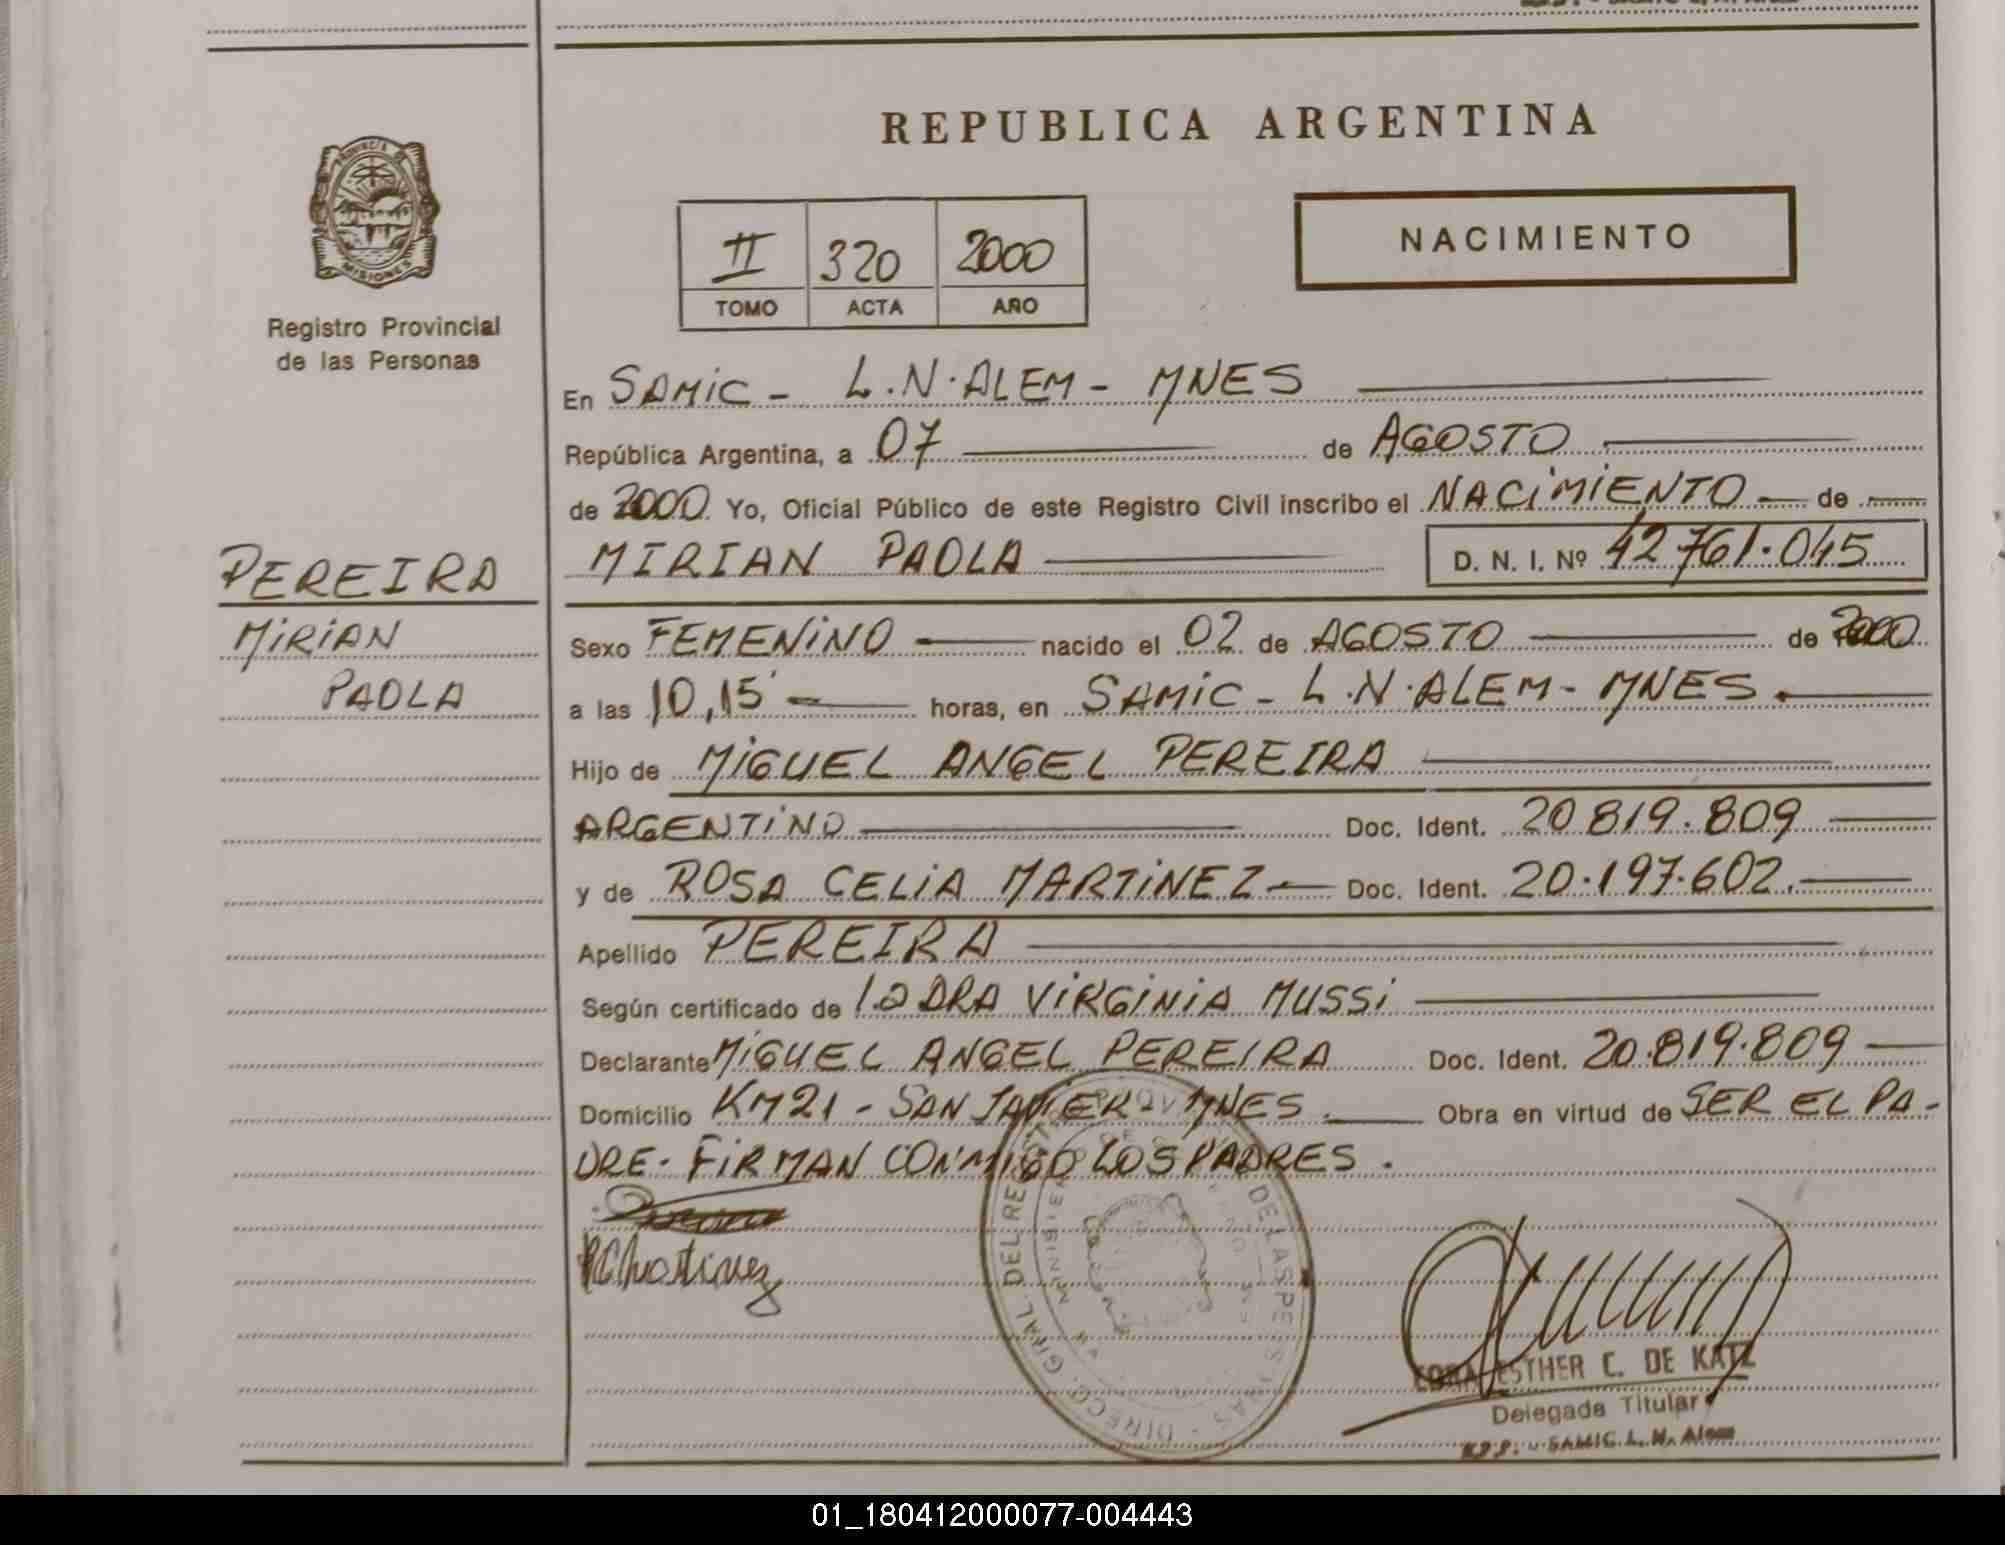 REPUBLICA ARGENTINA
PROVINCIA DE
MISIONES
Registro Provincial
de las Personas
NACIMIENTO
II 320 2000
TOMO ACTA AÑO
En SAMIC - L.N. ALEM - MNES
República Argentina, a 07 de AGOSTO
de 2000 Yo, Oficial Público de este Registro Civil inscribo el NACIMIENTO de
PEREIRA
MIRIAN
PAOLA
MIRIAN PAOLA D. N. I. Nº 42.761.045
Sexo FEMENINO nacido el 02 de AGOSTO de 2000
a las 10,15 horas, en SAMIC - L.N. ALEM - MNES.
Hijo de MIGUEL ANGEL PEREIRA
ARGENTINO Doc. Ident. 20.819.809
y de ROSA CELIA MARTINEZ Doc. Ident. 20.197.602.
Apellido PEREIRA
Según certificado de DRA VIRGINIA MUSSI
Declarante MIGUEL ANGEL PEREIRA Doc. Ident. 20.819.809
Domicilio KM21 - SAN JAVIER - MNES. Obra en virtud de SER EL PA-
DRE. FIRMAN CONMIGO LOS PADRES.
RCMartinez
DIRECC. GRAL. DEL REGISTRO DE LAS PERSONAS
ESTHER C. DE KATZ
Delegada Titular
R.P.P. - SAMIC L. N. Alem
01_180412000077-004443